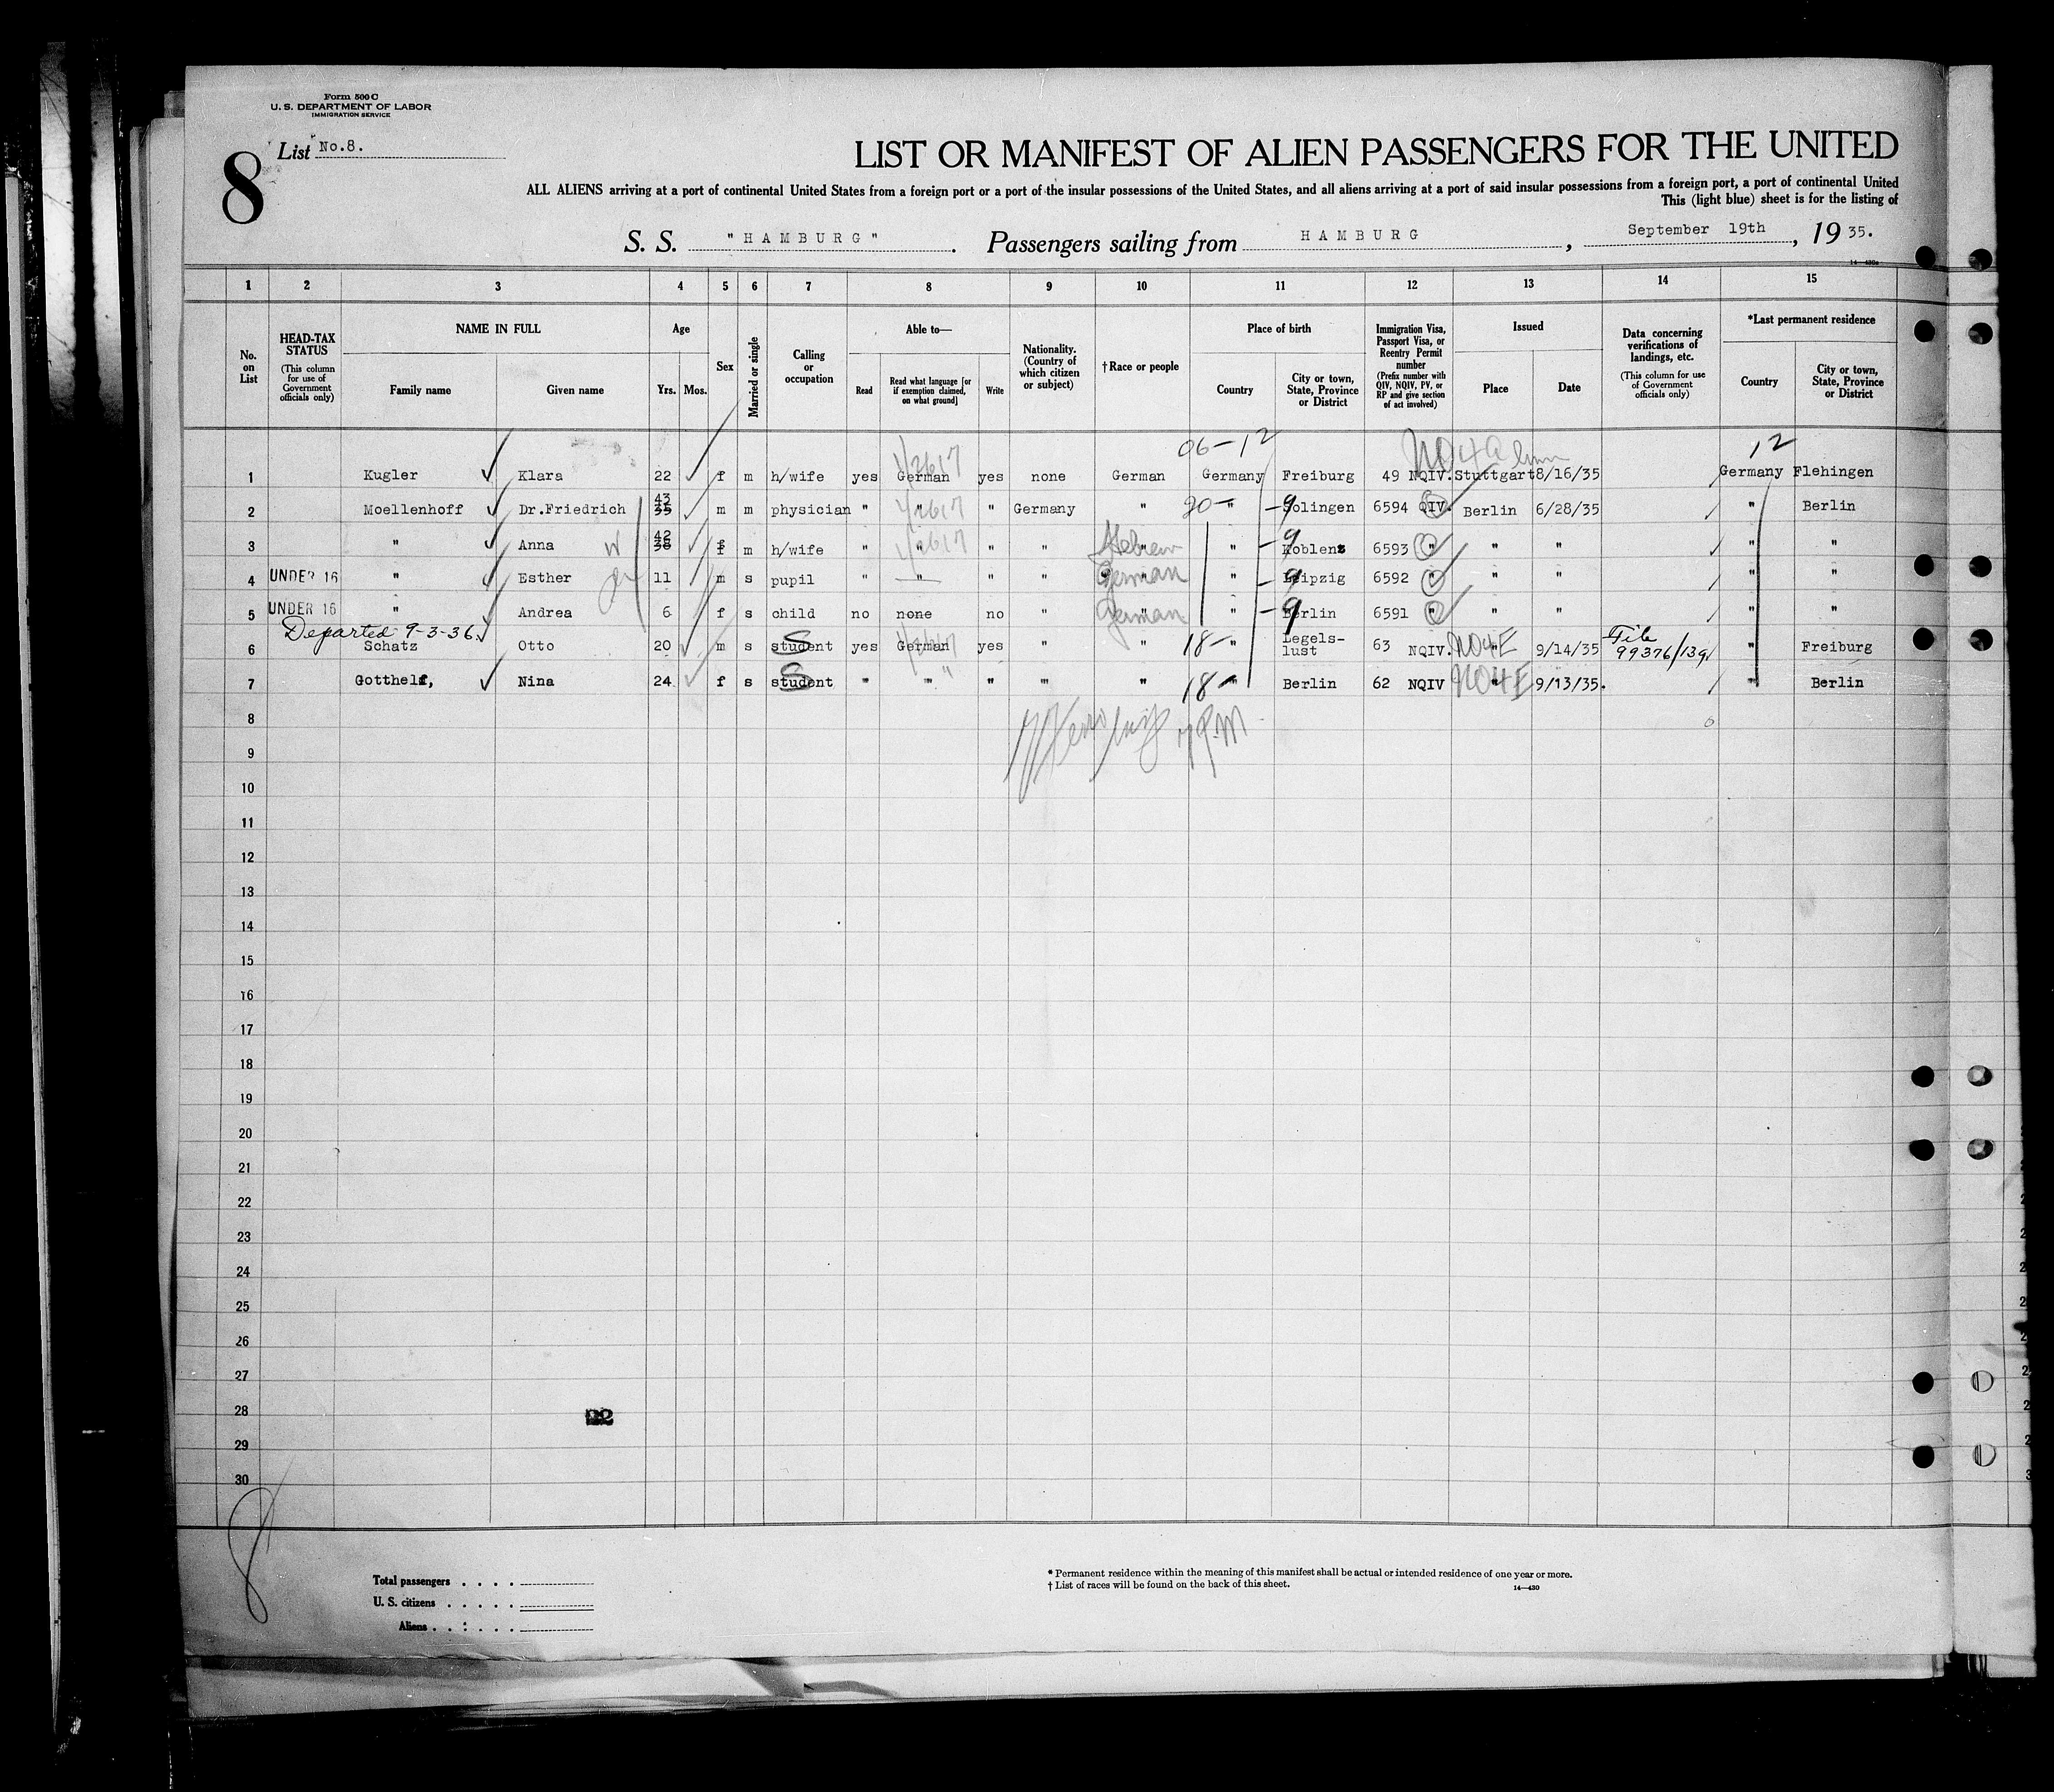 Form 500 C
U. S. DEPARTMENT OF LABOR
IMMIGRATION SERVICE
8
List No.8.
LIST OR MANIFEST OF ALIEN PASSENGERS FOR THE UNITED
ALL ALIENS arriving at a port of continental United States from a foreign port or a port of the insular possessions of the United States, and all aliens arriving at a port of said insular possessions from a foreign port, a port of continental United
This (light blue) sheet is for the listing of
S. S. "HAMBURG". Passengers sailing from HAMBURG, September 19th, 19 35.
1 2 3 4 5 6 7 8 9 10 11 12 13 14 15
No. on List
HEAD-TAX STATUS (This column for use of Government officials only)
NAME IN FULL
Family name
Given name
Age
Yrs. Mos.
Sex
Married or single
Calling or occupation
Able to—
Read
Read what language [or if exemption claimed, on what ground]
Write
Nationality. (Country of which citizen or subject)
†Race or people
Place of birth
Country
City or town, State, Province or District
Immigration Visa, Passport Visa, or Reentry Permit number (Prefix number with QIV, NQIV, PV, or RP and give section of act involved)
Issued
Place
Date
Data concerning verifications of landings, etc. (This column for use of Government officials only)
*Last permanent residence
Country
City or town, State, Province or District
06-12 12
1 Kugler Klara 22 f m h/wife yes German yes none German Germany Freiburg 49 NQIV. Stuttgart 8/16/35 Germany Flehingen
2 Moellenhoff Dr.Friedrich 43 m m physician " " " Germany " 20- " -9 Solingen 6594 QIV. Berlin 6/28/35 " Berlin
3 " Anna 42 f m h/wife " " " " Hebrew " -9 Koblenz 6593 " " " " "
4 UNDER 16 " Esther 11 m s pupil " " " " German " -9 Leipzig 6592 " " " " "
5 UNDER 16 " Andrea 6 f s child no none no " German " -9 Berlin 6591 " " " "
Departed 9-3-36.
6 Schatz Otto 20 m s student yes German yes " " 18- " Legels-lust 63 NQIV. NO4E " 9/14/35 File 99376/139 " Freiburg
7 Gotthelf, Nina 24 f s student " " " " " 18- " Berlin 62 NQIV NO4E " 9/13/35. " Berlin
8
9
10
11
12
13
14
15
16
17
18
19
20
21
22
23
24
25
26
27
28
29
30
8
Total passengers . . . .
U. S. citizens . . . . .
Aliens . . : . . .
* Permanent residence within the meaning of this manifest shall be actual or intended residence of one year or more.
† List of races will be found on the back of this sheet.
14—430